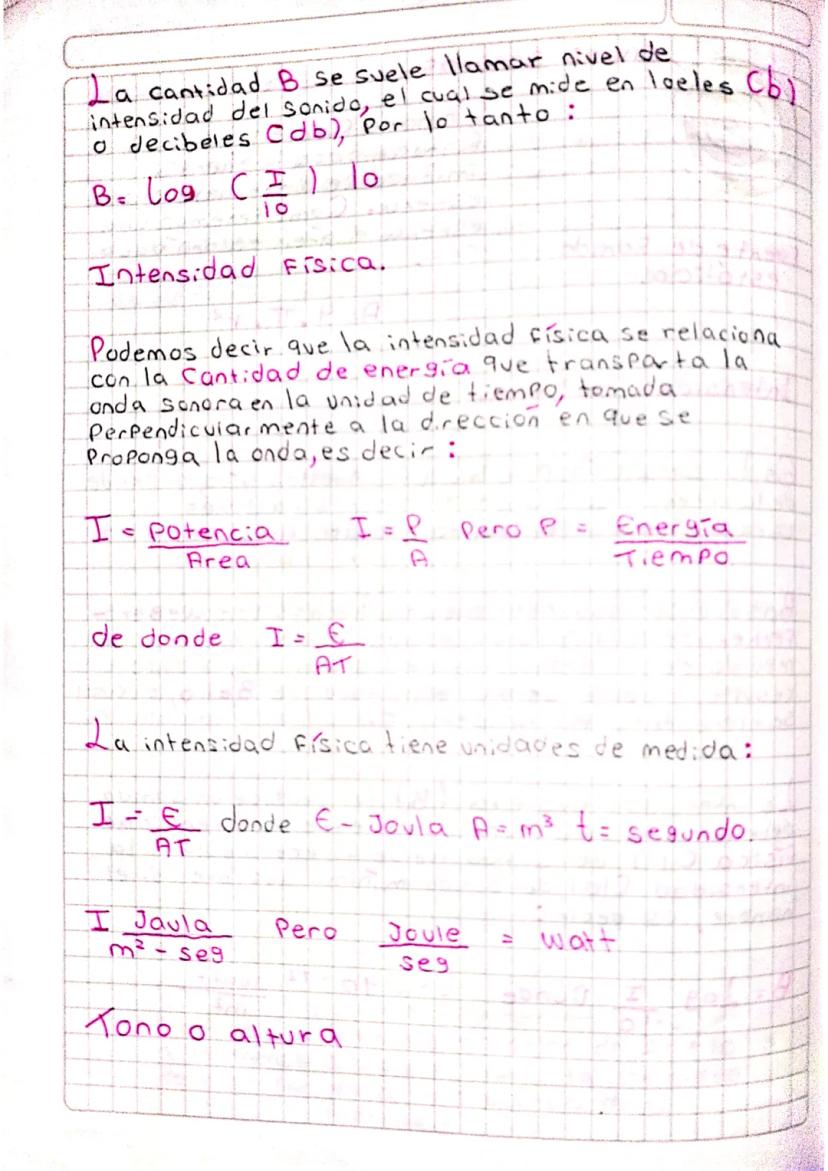 La cantidad B se suele llamar nivel de
intensidad del sonido, el cual se mide en loeles (b)
o decibeles (db), Por lo tanto :
B= log ( I/10 ) 10
Intensidad Física.
Podemos decir que la intensidad física se relaciona
con la Cantidad de energía que transporta la
onda sonora en la unidad de tiempo, tomada
Perpendicularmente a la dirección en que se
Proponga la onda, es decir :
I = Potencia/Area I = P/A Pero P = Energía/Tiempo
de donde I = E/AT
La intensidad física tiene unidades de medida :
I = E/AT donde E - Joula A = m³ t = segundo.
I Jaula/m² - seg Pero Joule/seg = watt
Tono o altura